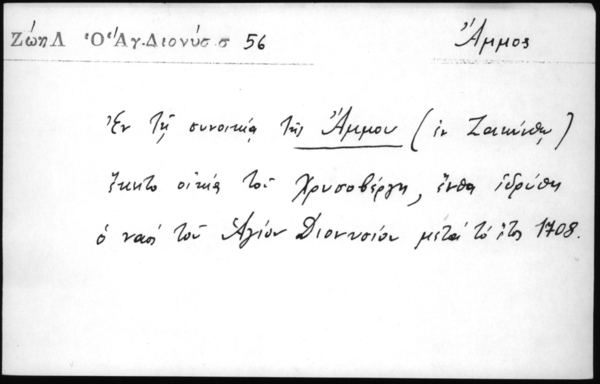 Ζώη Λ Ὁ Ἅγ. Διονύσ. σ 56 Ἄμμος
Ἐν τῇ συνοικίᾳ τῆς Ἄμμου (ἐν Ζακύνθῳ)
ἔκειτο οἰκία τοῦ Χρυσοβέργη, ἔνθα ἱδρύθη
ὁ ναὸς τοῦ Ἁγίου Διονυσίου μετὰ τὸ ἔτος 1708.